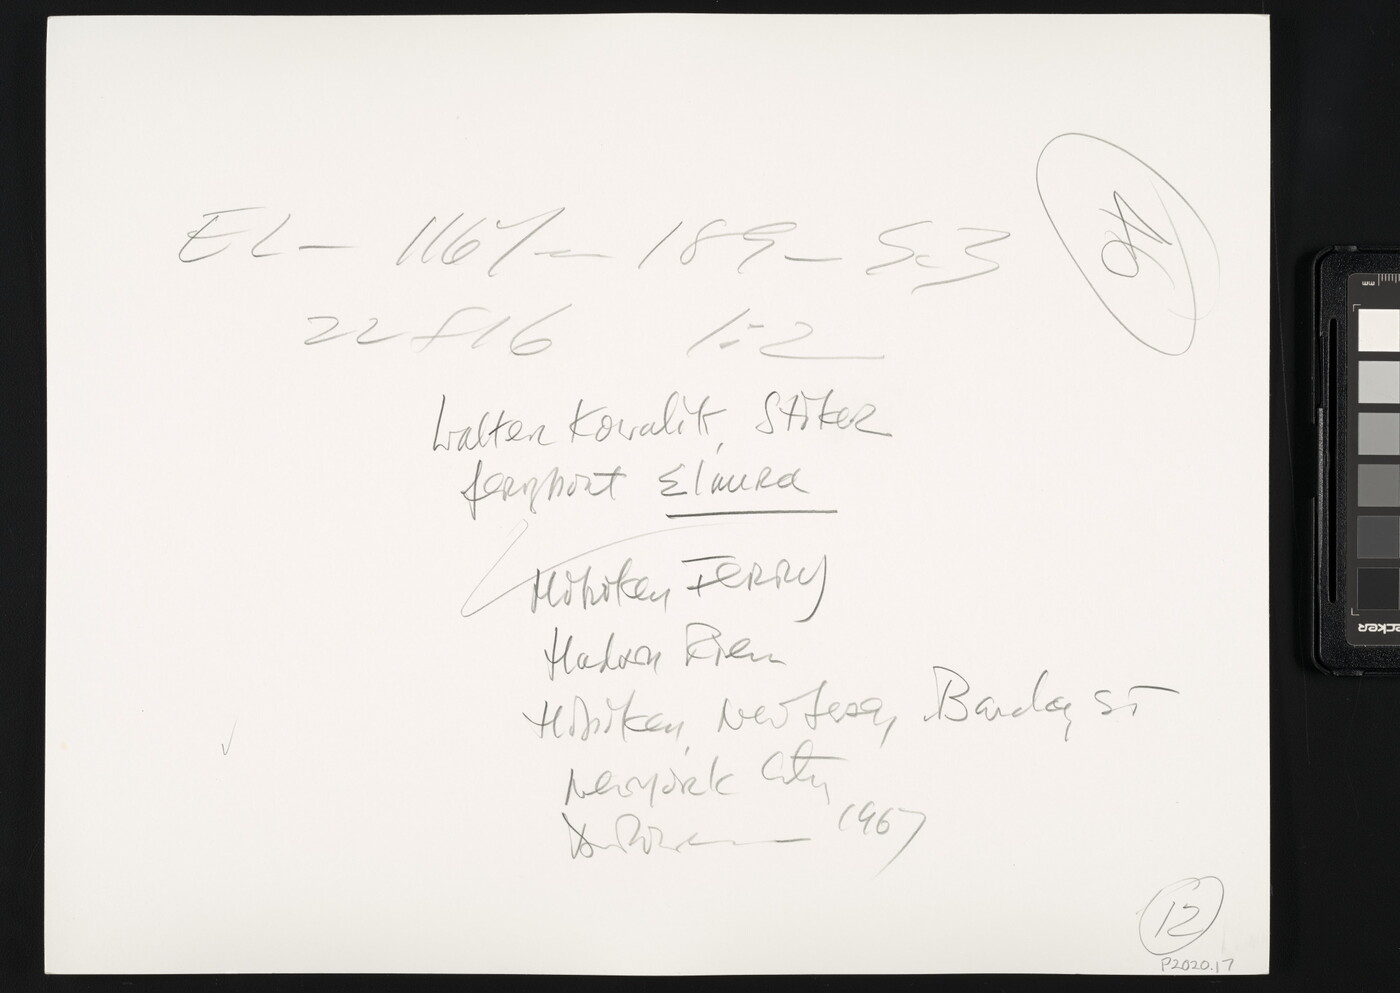 EL - 1167 - 189 - 5.3
22 f16 1:2
Walter Kowalik, Stoker
ferryboat Elmira
Hoboken FERRY
Hudson River
Hoboken, New Jersey, Barclay ST
New York City
1967
12
P2020.17